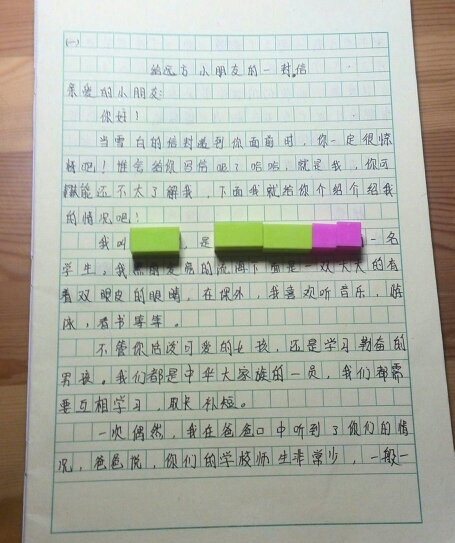 (一)
给远方小朋友的一封信
亲爱的小朋友:
你好!
当雪白的信封递到你面前时,你一定很惊
呀吧!谁会给你写信呢?哈哈,就是我,你可
能还不太了解我,下面我就给你介绍介绍我
的情况吧!
我叫 ,是 一名
学生。我 的 下面是一双大大的有
着双眼皮的眼睛,在课外,我喜欢听音乐,游
泳,看书等等。
不管你是可爱的女孩,还是学习勤奋的
男孩。我们都是中华大家族的一员,我们都需
要互相学习,取长补短。
一次偶然,我在爸爸口中听到了你们的情
况,爸爸说,你们的学校师生非常少,一般一